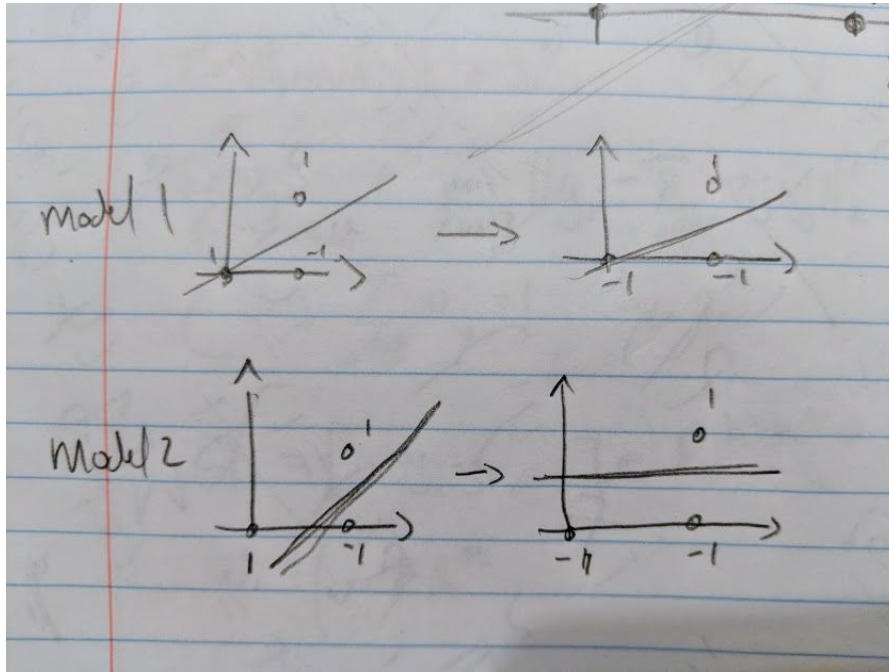 Model 1
1
1
-1
-1
-1
Model 2
1
1
-1
1
-1